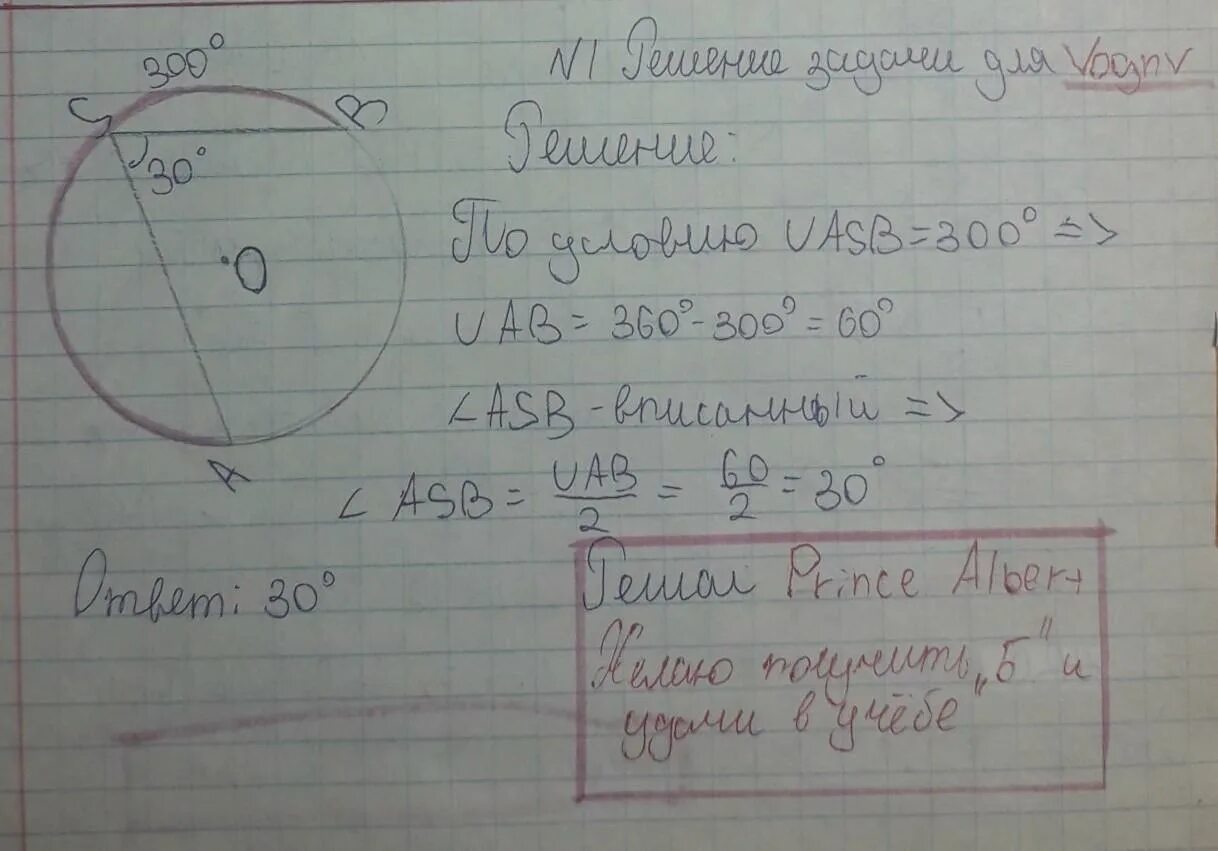 N1 Решение задачи для Vognv
300°
S
B
30°
O
A
Решение:
По условию ∪ASB=300° =>
∪AB = 360°-300°=60°
∠ASB-вписанный =>
∠ASB = ∪AB/2 = 60/2 = 30°
Ответ: 30°
Решал Prince Albert
Желаю получить „5" и
удачи в учёбе